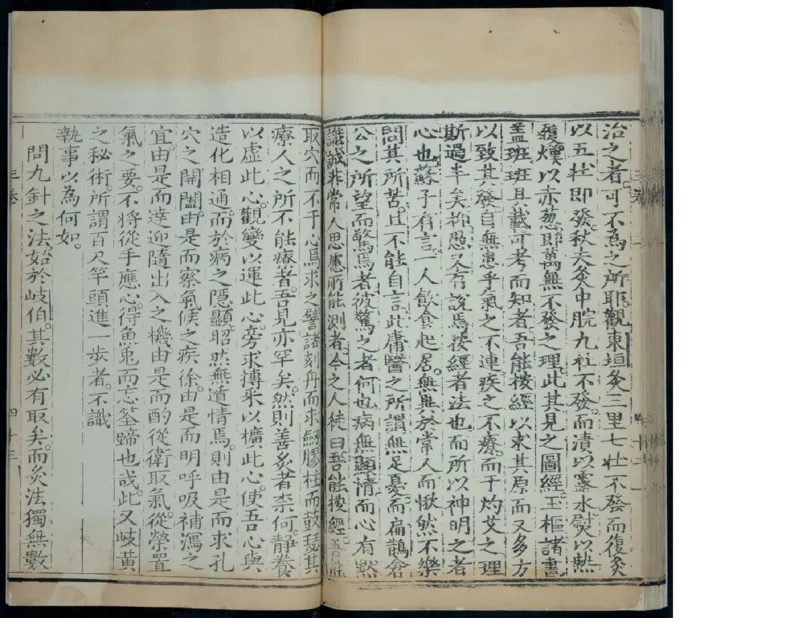 治之者。可不為之所耶。觀東垣灸三里七壯不發。而復灸
以五壯即發。秋夫灸中脘九壯不發。而漬以露水。熨以熱
履。熯以赤葱。即萬無不發之理。此其見之圖經玉樞諸書。
盖班班具載可考而知者。吾能按經以求其原。而又多方
以致其發。自無患乎氣之不連。疾之不療。而于灼艾之理
斯過半矣。抑愚又有說焉。按經者法也。而所以神明之者
心也。蘇子有言。一人飲食起居。無異於常人。而愀然不樂。
問其所苦。且不能自言。此庸醫之所謂無足憂。而扁鵲倉
公之所望而驚焉者。彼驚之者何也。病無顯情。而心有默
識。誠非常人思慮所能測者。今之人徒曰吾能按經吾能
取穴。而不于心焉求之。譬諸刻舟而求劍。膠柱而鼓瑟。其
療人之所不能療者。吾見亦罕矣。然則善灸者柰何。靜養
以虛此心。觀變以運此心。旁求摶釆以擴此心。使吾心與
造化相通。而於病之隱顯。昭然無遁情焉。則由是而求孔
穴之開闔。由是而察氣候之疾徐。由是而明呼吸補瀉之
宜。由是而達迎隨出入之機。由是而酌從衛取氣。從榮置
氣之要。不將從手應心。得魚兎而忘筌蹄也哉。此又岐黃
之秘術。所謂百尺竿頭進一步者。不識
執事以為何如。
三卷 四十三
問九針之法。始於岐伯。其數必有取矣。而灸法獨無數